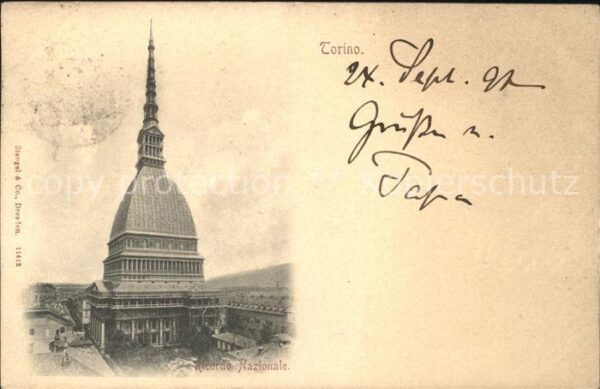 Torino.
24. Sept. 97
Grüße u.
Papa
Stengel & Co., Dresden. 11412
Ricordo Nazionale.
copy protection · Kopierschutz